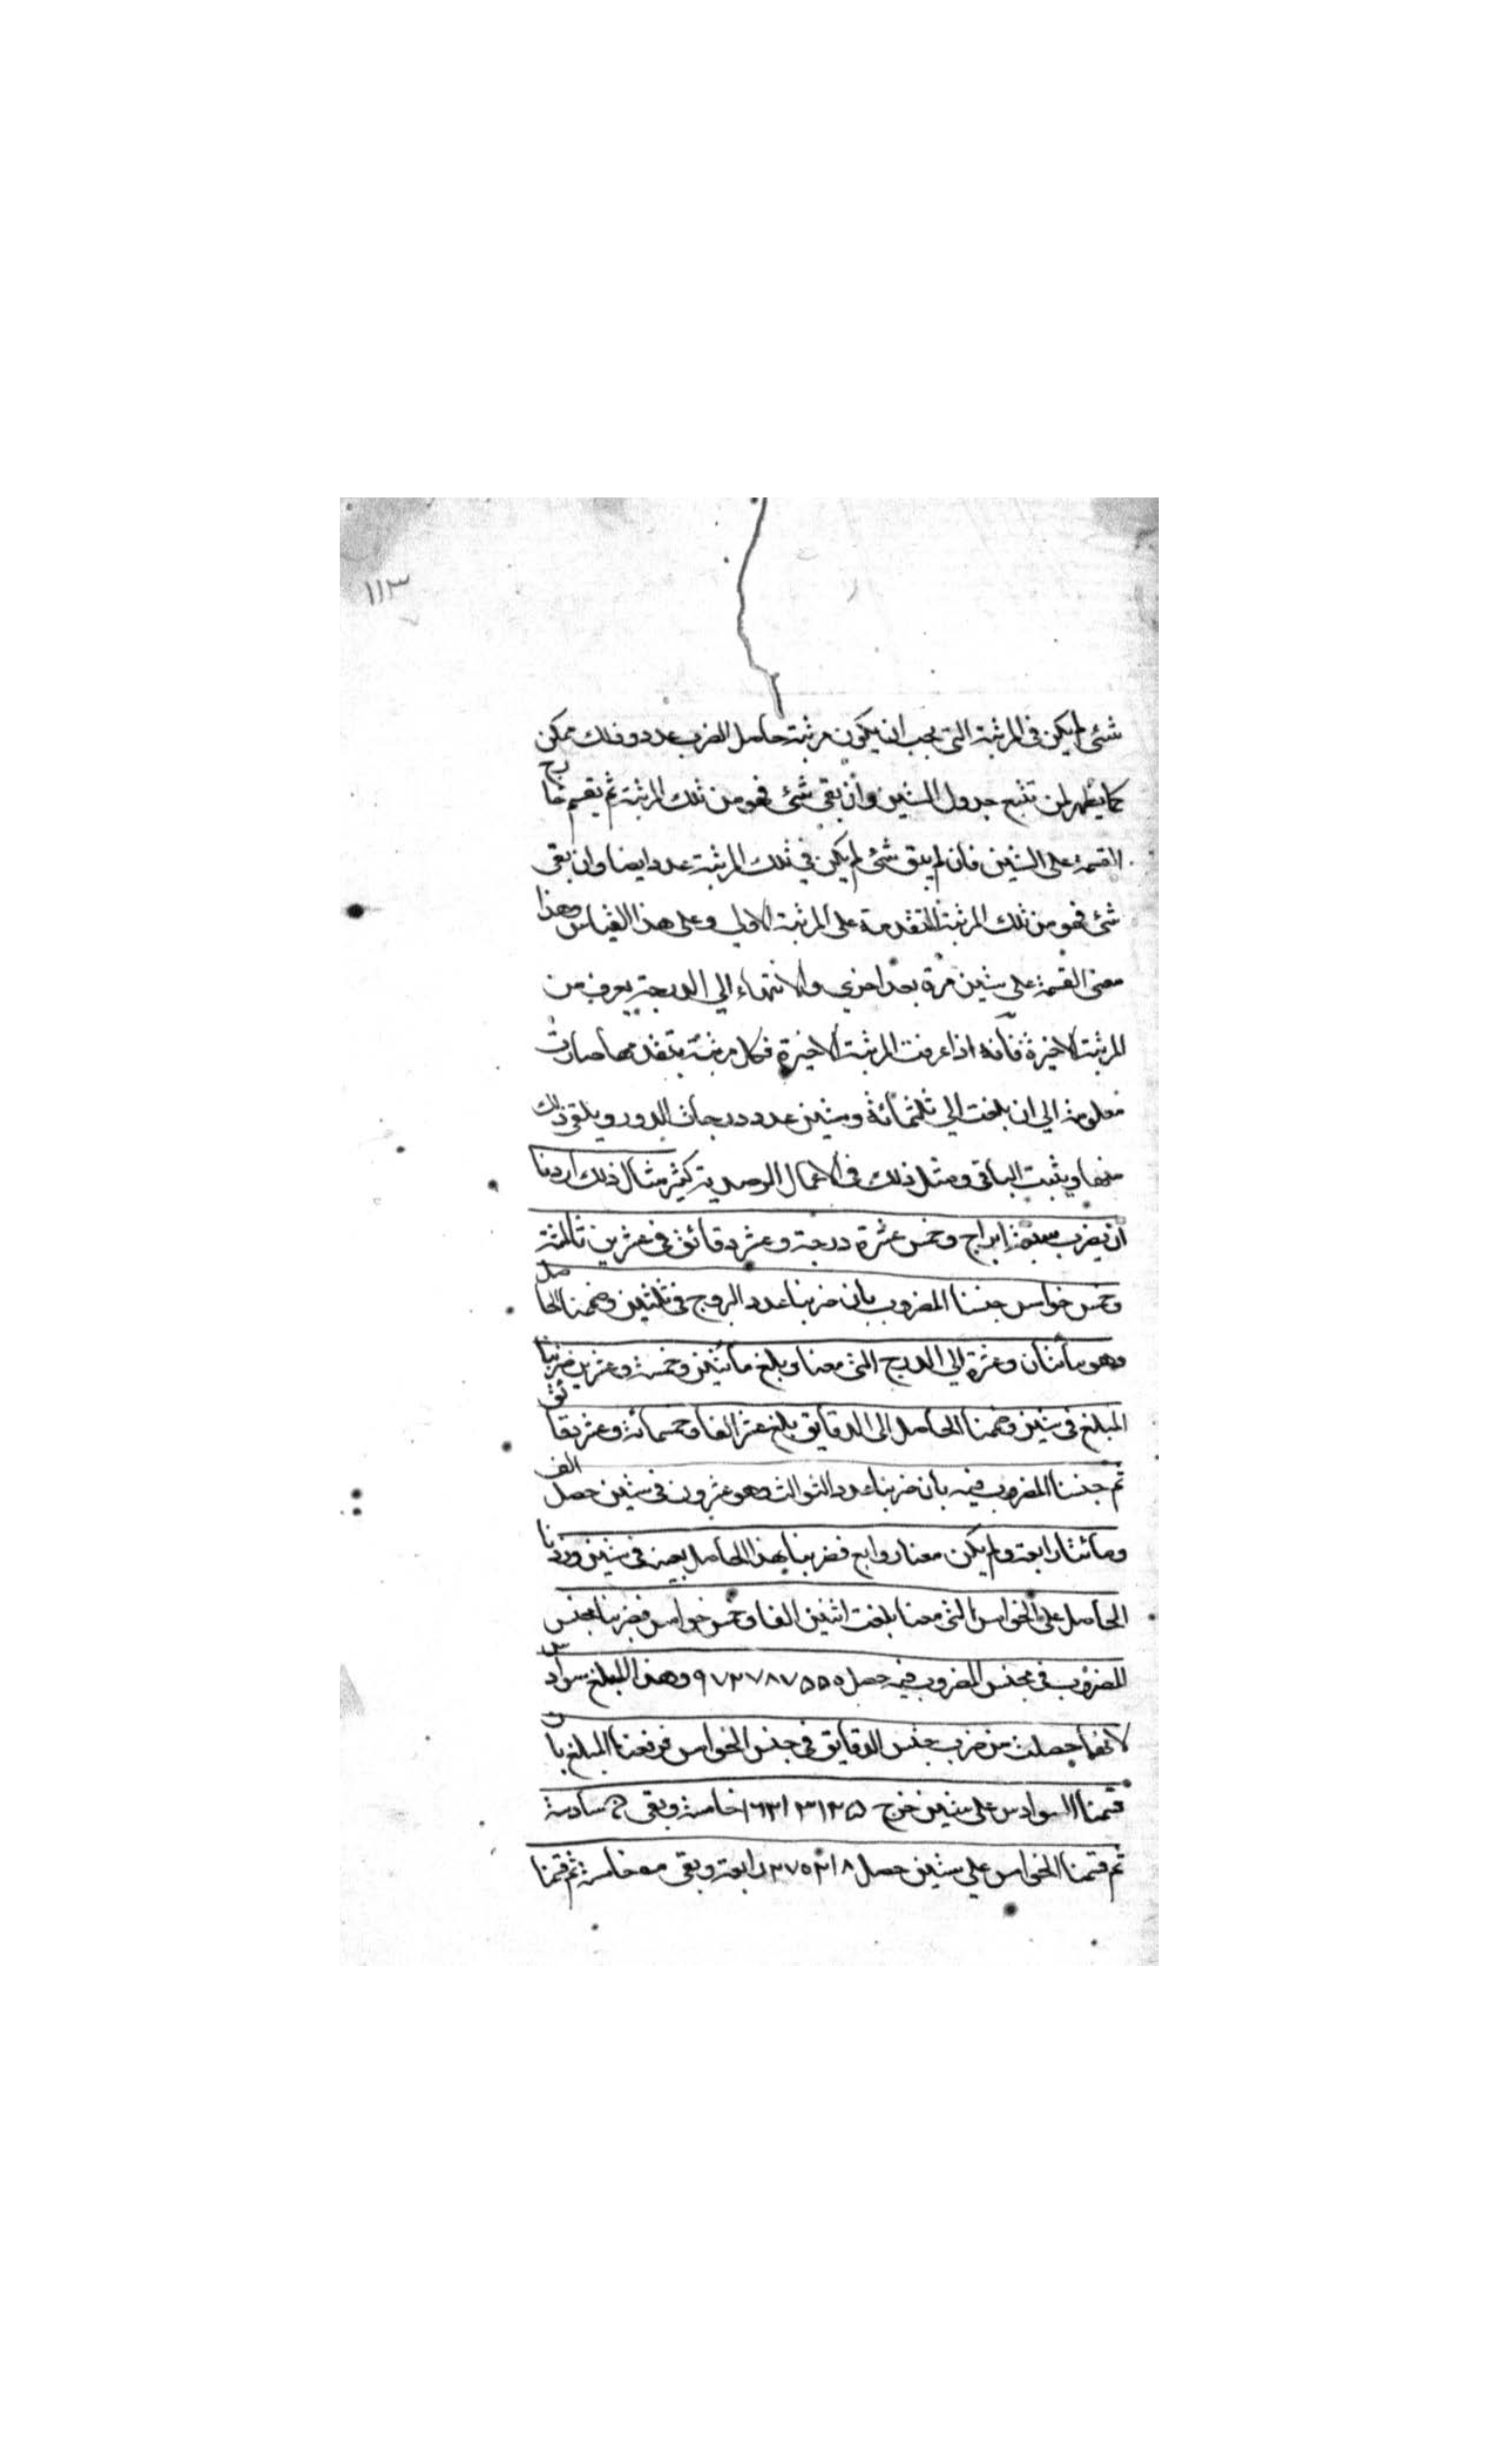 ١١٣
شئ لم يكن في المرتبة التي يجب ان يكون مرتبة حاصل الضرب عدد وذلك ممكن
كما يظهر لمن تتبع جدول الستين وان بقى شئ فهو من تلك المرتبة ثم يقسم خارج
القسمة على الستين فان لم يبق شئ لم يكن في تلك المرتبة عدد ايضا وان بقى
شئ فهو من تلك المرتبة المتقدمة على المرتبة الاولى وعلى هذا القياس وهذا
معنى القسمة على ستين مرة بعد اخرى والانتهاء الى الدرجة يعرف من
المرتبة الاخيرة فانه اذا عرفت المرتبة الاخيرة فكل مرتبة يتقدمها صارت
معلومة الى ان بلغت الى ثلثمائة وستين عدد درجات الدور ويلقى ذلك
منها ويثبت الباقي ومثل ذلك في الاعمال الرصدية كثير مثال ذلك اردنا
ان يضرب سبعة ابراج وخمس عشرة درجة وعشر دقائق في عشرين ثالثة
وخمس خوامس جنسنا المضروب بان ضربنا عدد البروج في ثلثين وضممنا الحاصل
وهو مائتان وعشرة الى الدرج التي معنا وبلغ مائتين وخمسة وعشرين ضربنا
المبلغ في ستين وضممنا الحاصل الى الدقايق بلغ عشر الفا وخمسمائة وعشر دقائق
ثم جنسنا المضروب فيه بان ضربنا عدد الثوالث وهو عشرون في ستين حصل الف
ومائتا رابعة ولم يكن معنا روابع فضربنا بهذا الحاصل بعينه في ستين وزدنا
الحاصل على الخوامس التي معنا بلغت اثنين الفا وخمس خوامس فضربنا مجنس
المضروب في مجنس المضروب فيه حصل ٩٧٢٧٨٧٥٥٠ وهذا المبلغ سوادس
لانها حصلت من ضرب جنس الدقايق في جنس الخوامس فرفعنا المبلغ بان
قسمنا السوادس على ستين خرج ١٦٢١٣١٢٥ خامسة وبقى سادسة
ثم قسمنا الخوامس على ستين حصل ٢٧٠٢١٨ رابعة وبقى مه خامسة ثم قسمنا